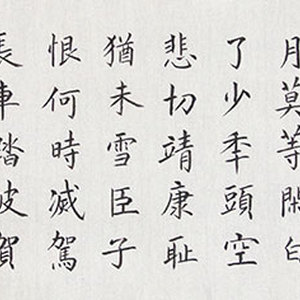 月莫等閑白
了少秊頭空
悲切靖康耻
猶未雪臣子
恨何時滅駕
長車踏破賀